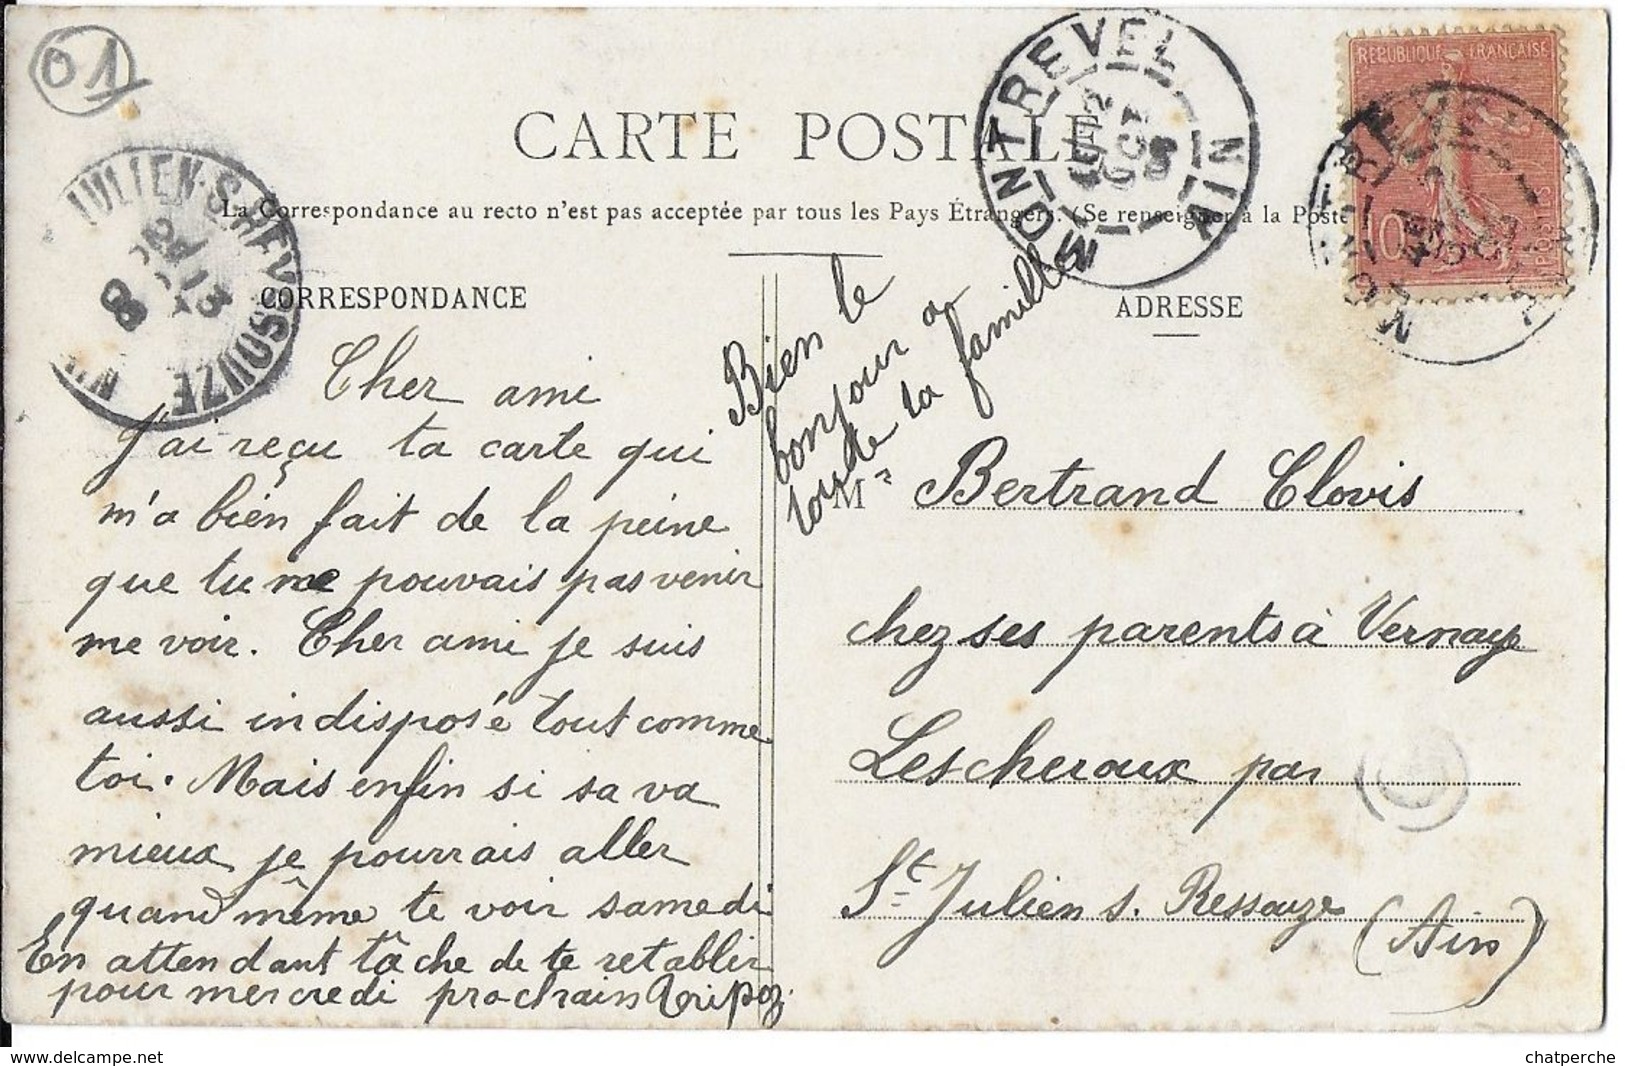 01
CARTE POSTALE
La Correspondance au recto n'est pas acceptée par tous les Pays Étrangers. (Se renseigner à la Poste
CORRESPONDANCE
Cher ami
J'ai reçu ta carte qui
m'a bien fait de la peine
que tu ne pouvais pas venir
me voir. Cher ami je suis
aussi indisposé tout comme
toi. Mais enfin si sa va
mieux je pourrais aller
quand même te voir samedi
En attendant tâche de te retablir
pour mercredi prochain
Bien le
bonjour a
toute la famille
ADRESSE
Mr Bertrand Clovis
chez ses parents à Vernaye
Lescheroux par
St Julien s. Ressouze
(Ain)
RÉPUBLIQUE FRANÇAISE
10
POSTES
MONTREVEL
AIN
JULIEN-S-REYSSOUZE
13
08
chatperche